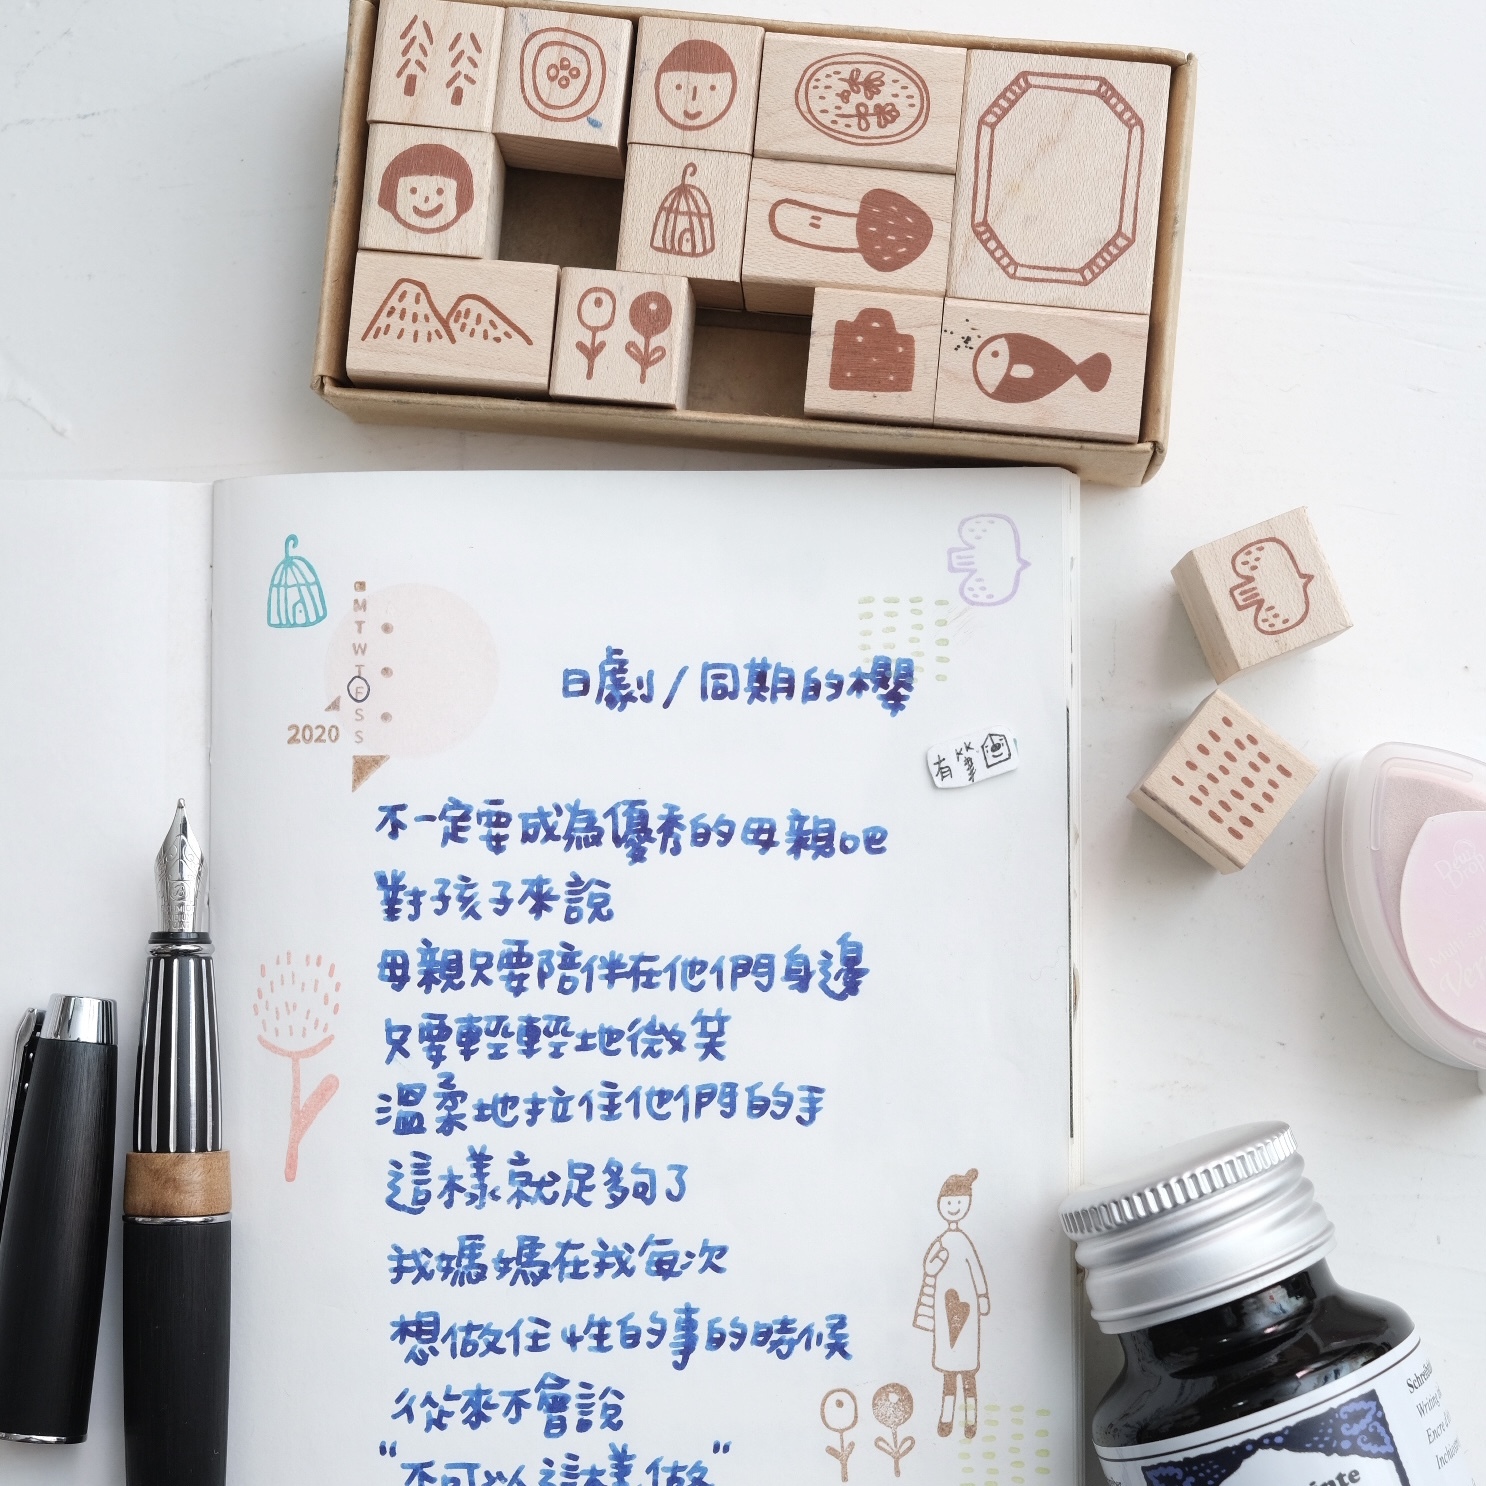 M
T
W
T
F
S
S
2020
日劇/同期的櫻
有筆
不一定要成為優秀的母親吧
對孩子來說
母親只要陪伴在他們身邊
只要輕輕地微笑
溫柔地拉住他們的手
這樣就足夠了
我媽媽在我每次
想做任性的事的時候
從來不會說
“不可以這樣做”
Dew
Drop